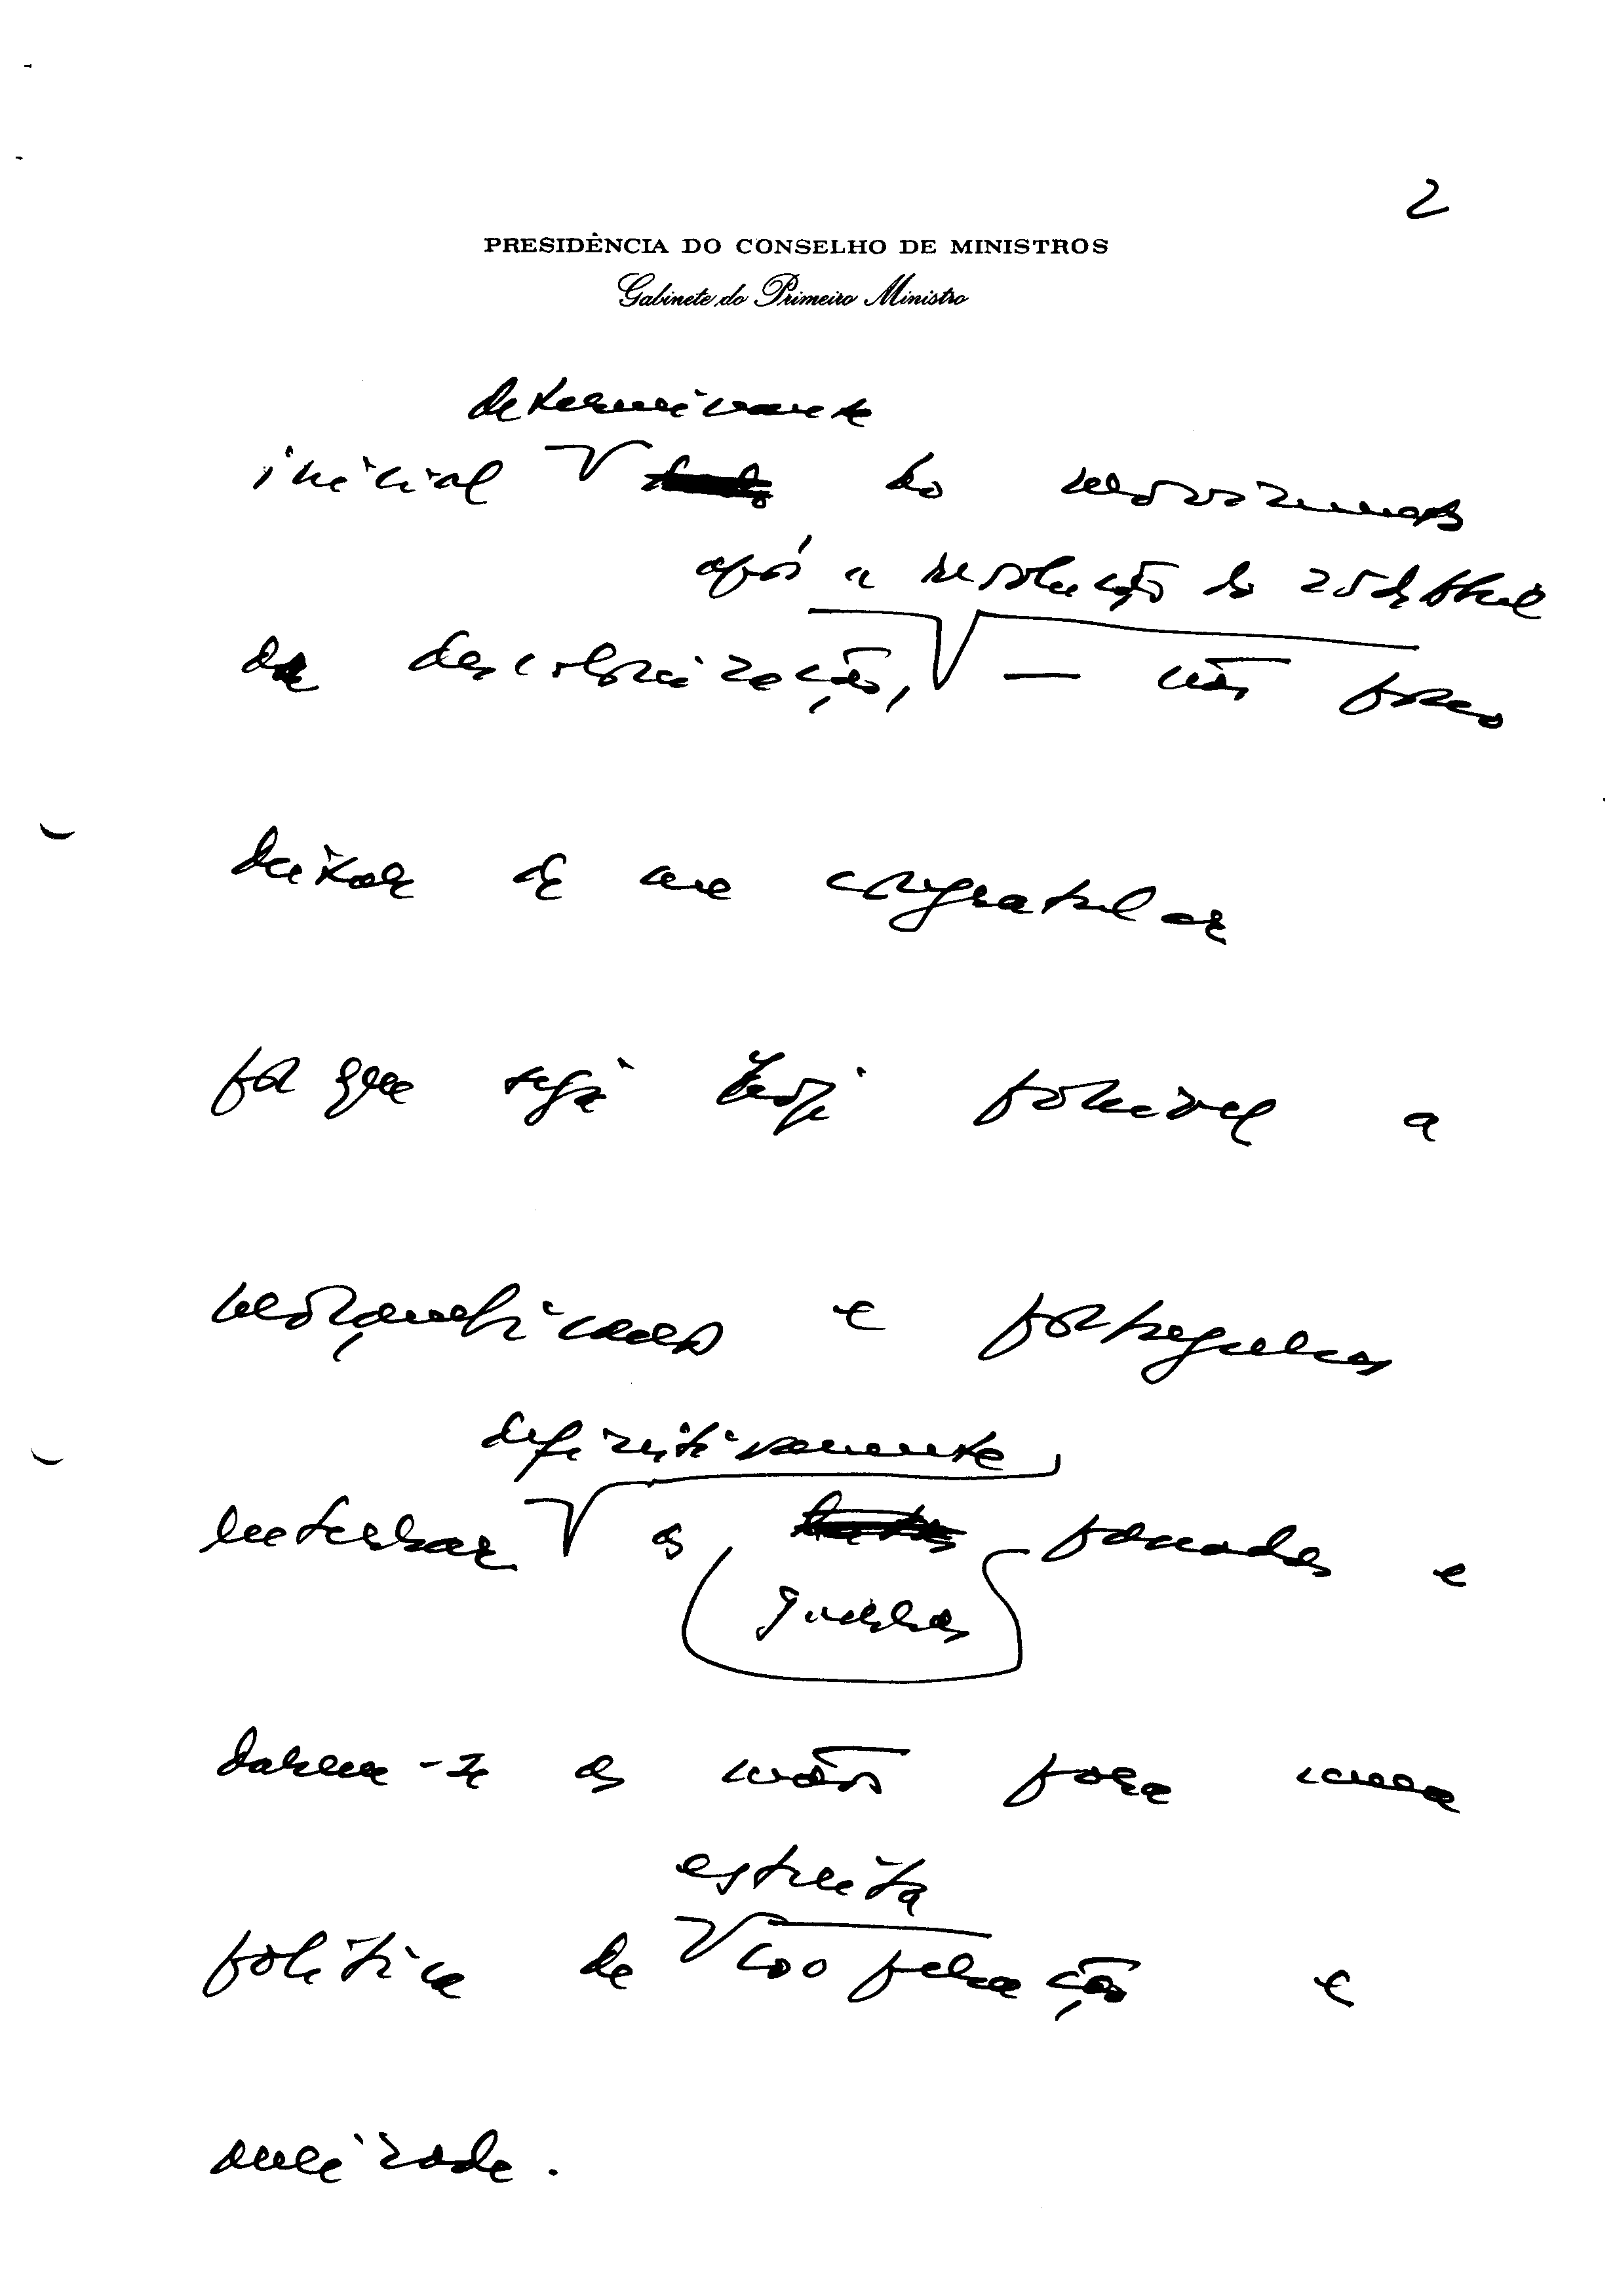 2
PRESIDÊNCIA DO CONSELHO DE MINISTROS
Gabinete do Primeiro Ministro
determinante
inicial do movimento
após a revolução do 25 de Abril
da descolonização, — não posso
deixar de me congratular
por que seja hoje possível a
moçambicanos e portugueses
definitivamente
enterrar as passadas e
guerras
darem-se as mãos para uma
estreita
política de cooperação e
amizade.